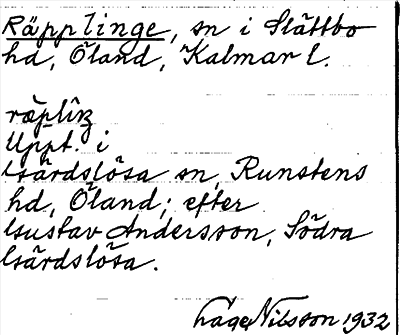 Räpplinge, sn i Slättbo
hd, Öland, Kalmar l.
Uppt. i
Gärdslösa sn, Runstens
hd, Öland; efter
Gustav Andersson, Södra
Gärdslösa.
Låge Nilsson 1932